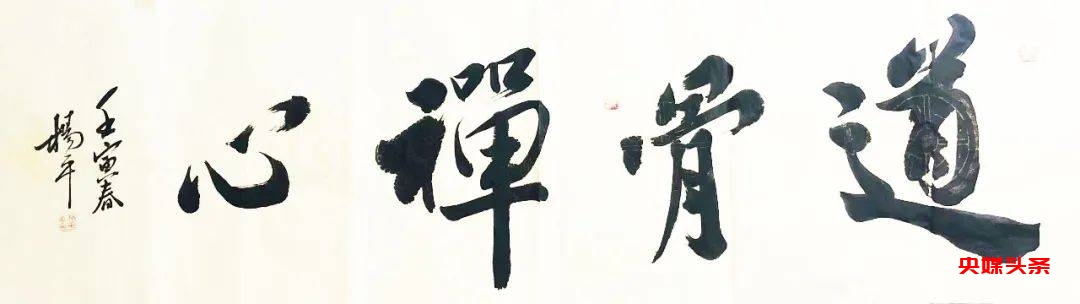 道骨禪心
壬寅春
楊平
央媒头条